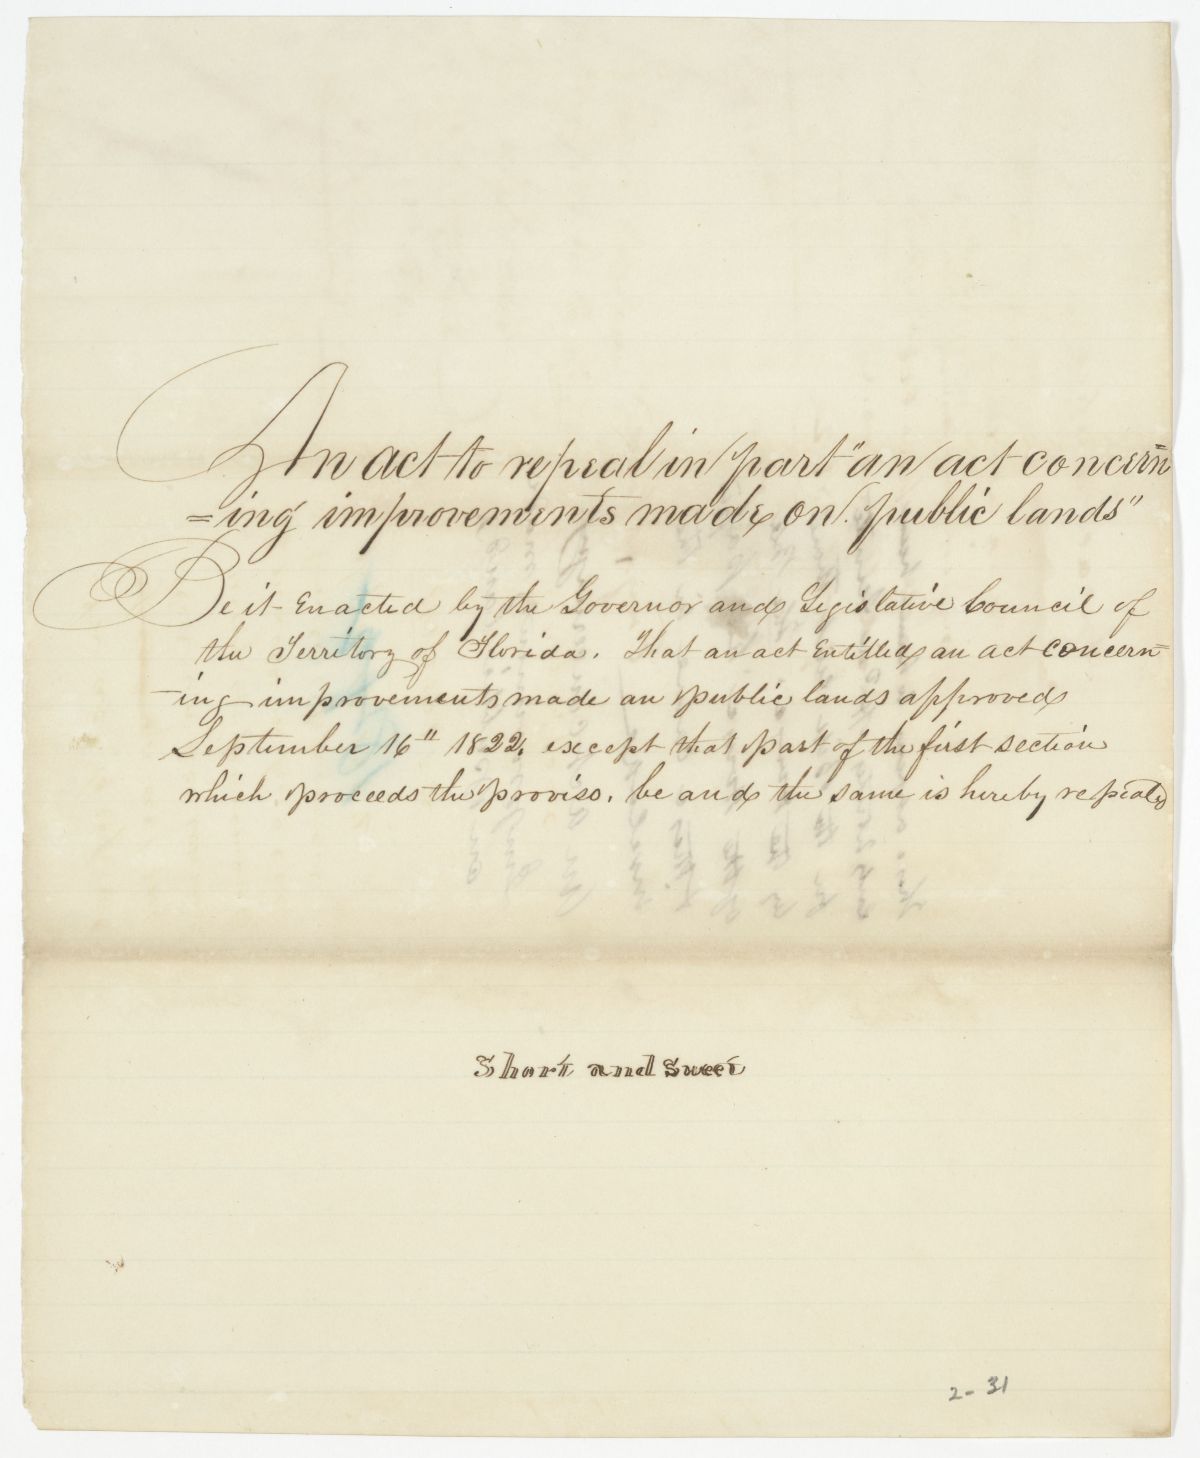 An act to repeal in part "an act concern=
=ing improvements made on public lands"
Be it Enacted by the Governor and Legislative Council of
the Territory of Florida. That an act Entitled an act concern=
=ing improvements made an public lands approved
September 16" 1822, except that part of the first section
which proceeds the proviso. be and the same is hereby repealed
Short and Sweet
2-31